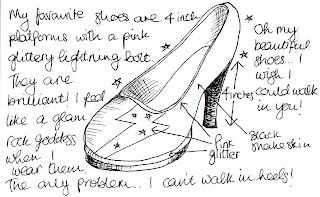 My favourite shoes are 4 inch
platforms with a pink
glittery lightning bolt.
They are
brilliant! I feel
like a glam
rock goddess
when I
wear them.
The only problem... I can't walk in heels!
Oh my
beautiful
shoes... I
wish I
could walk
in you!
4 inches
Pink
glitter
Black
snake skin